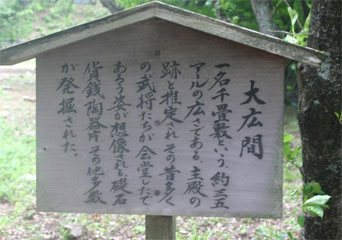 大広間
一名千畳敷という。約三五
アールの広さである。主殿の
跡と推定されその昔多く
の武将たちが会堂したで
あろう姿が想像される礎石
背銭陶器片その他多数
が発掘された。